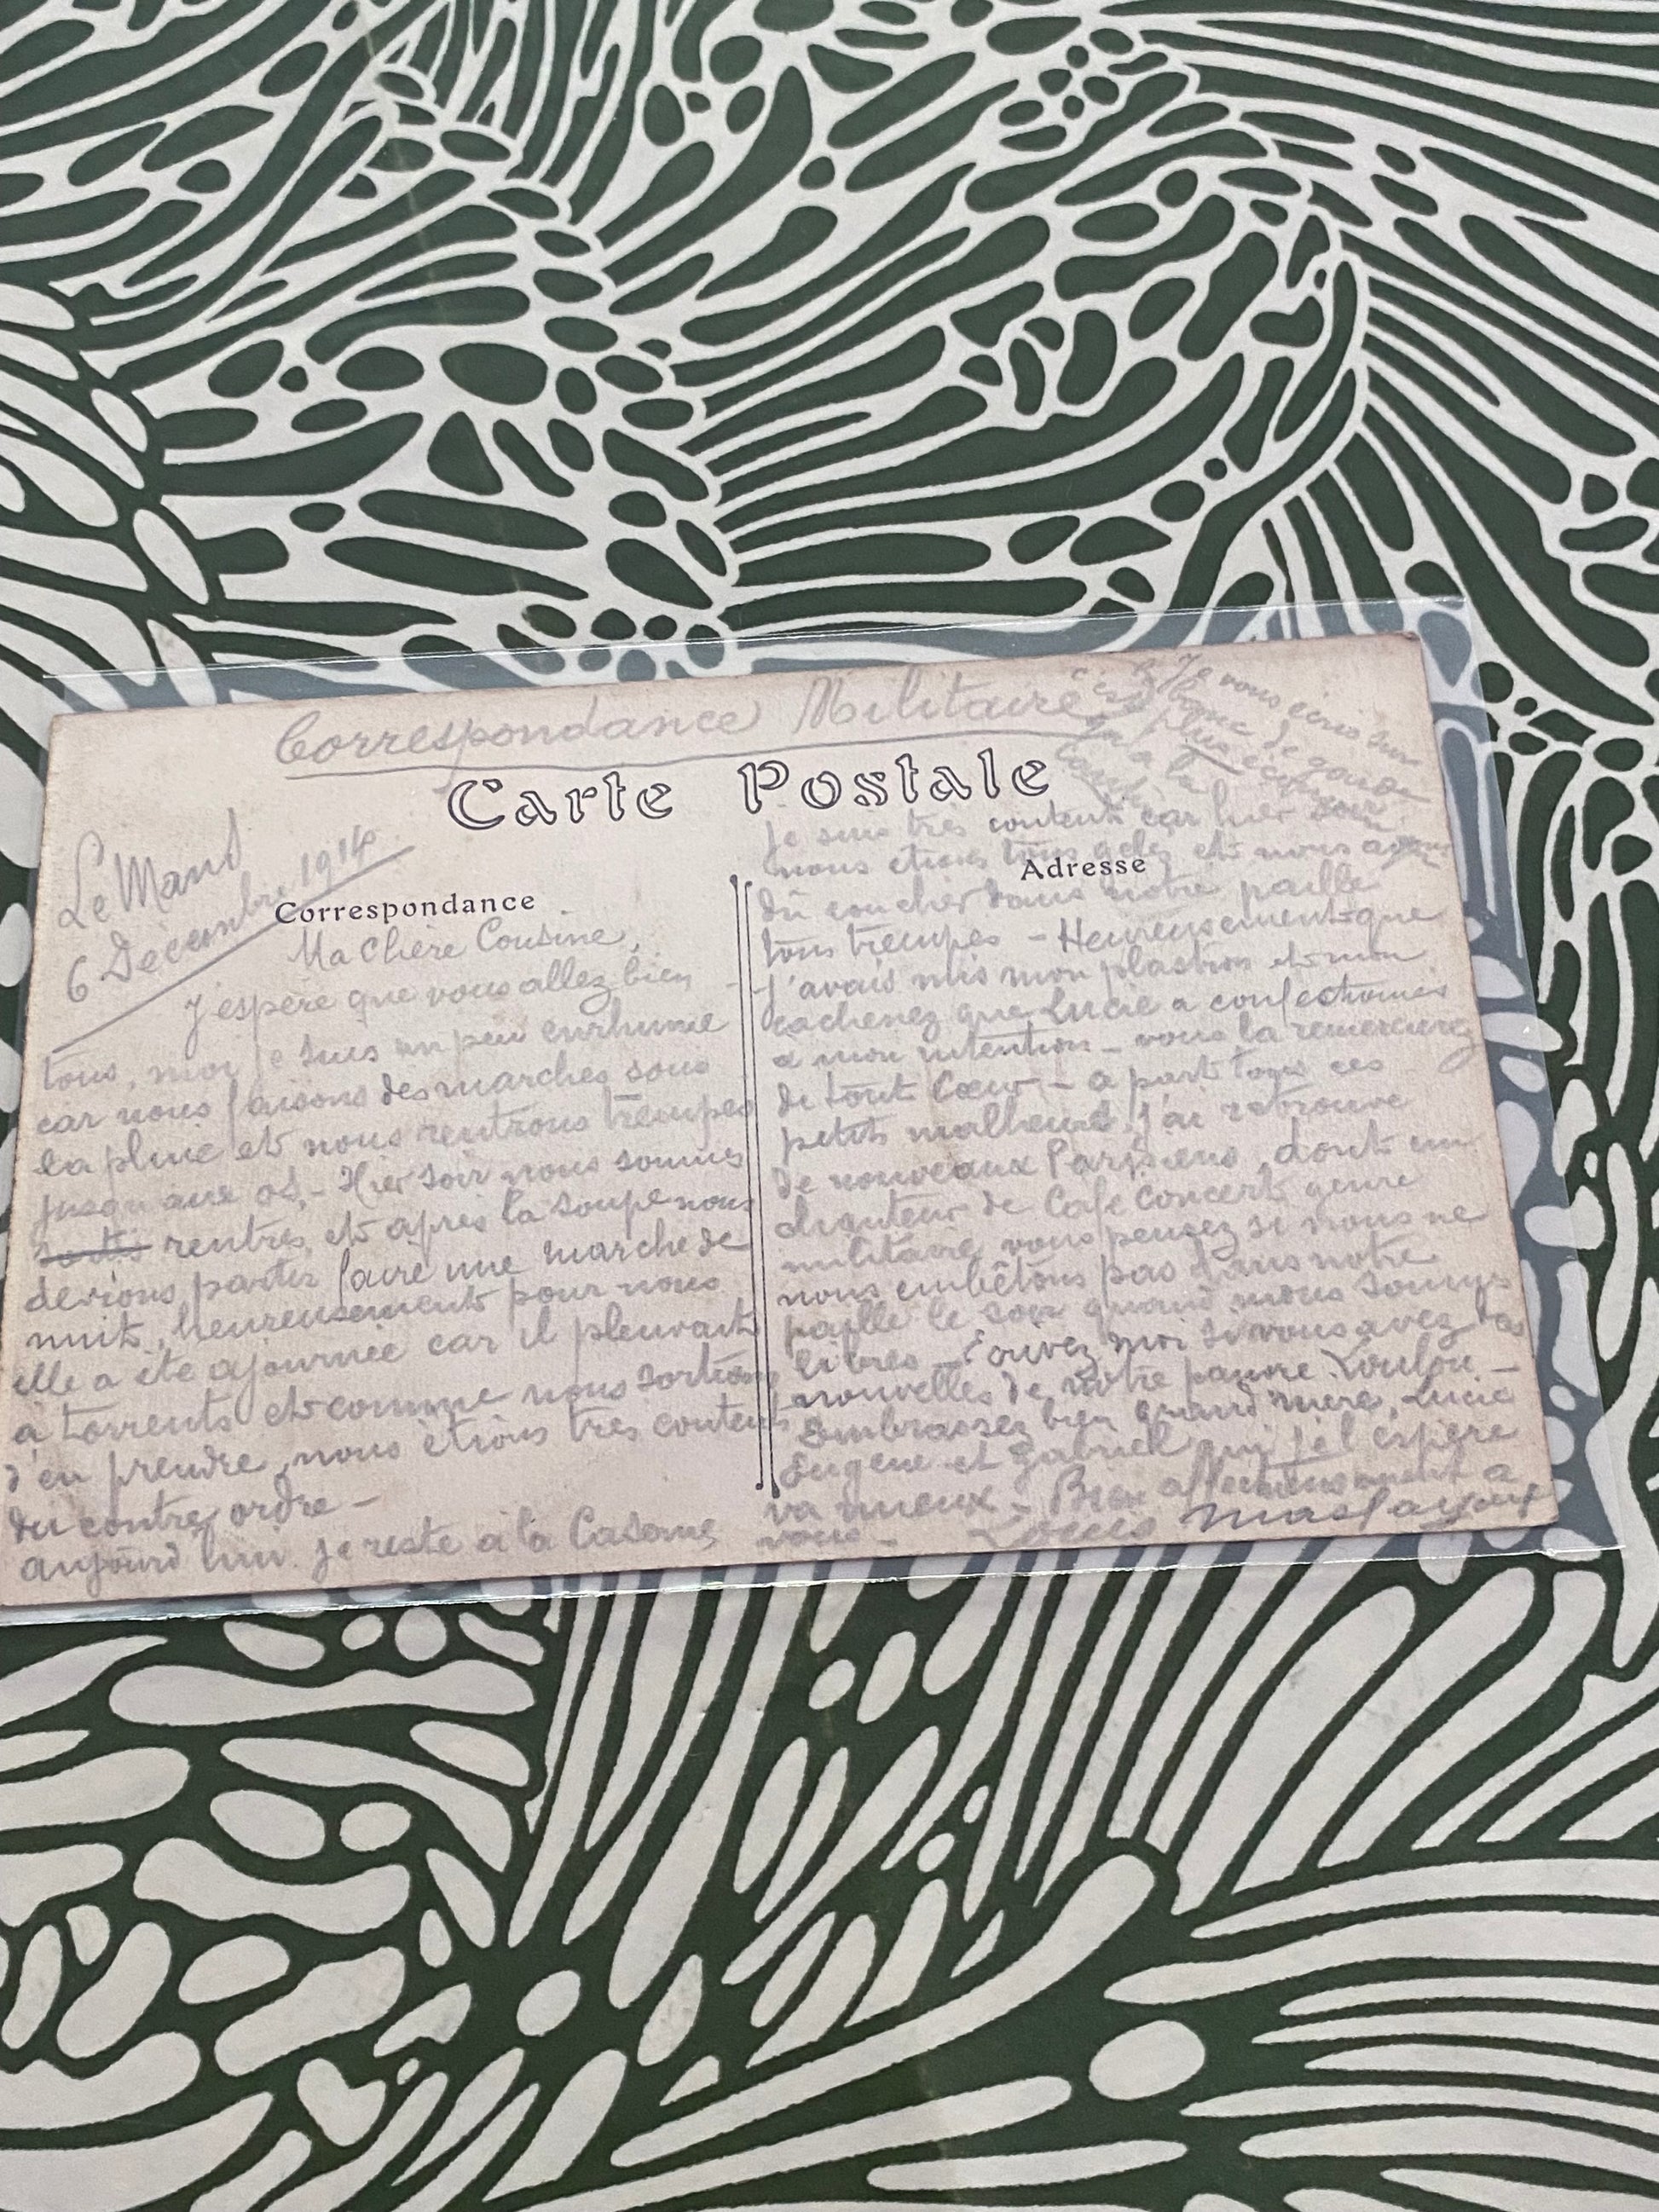 Correspondance Militaire
Je vous écris sur
le banc de garde
c'est plus
à la
Carte Postale
Le Mans
6 Décembre 1914
Correspondance
Adresse
Ma Chère Cousine,
J'espère que vous allez bien
tous, moi je suis un peu enrhumé
car nous faisons des marches sous
la pluie et nous rentrons trempés
jusqu'aux os, - Hier soir nous sommes
rentrés, et après la soupe nous
devions partir faire une marche de
nuit, heureusement pour nous
elle a été ajournée car il pleuvait
à torrents et comme nous sortions
d'en prendre, nous étions très contents
du contre ordre -
aujourd'hui je reste à la Caserne
je suis très content car hier soir
nous étions tous gelés et nous avons
dû coucher dans notre paille
tous trempés - Heureusement que
j'avais mis mon plastron et mon
cachenez que Lucie a confectionnés
à mon intention - vous la remercierez
de tout Cœur - à part tous ces
petits malheurs, j'ai retrouvé
de nouveaux Parisiens, dont un
chanteur de Café Concert genre
militaire, vous pensez si nous ne
nous embêtons pas dans notre
paille le soir quand nous sommes
libres - Ecrivez moi si vous avez des
nouvelles de notre pauvre Loulou -
Embrassez bien grand'mère, Lucie
Eugène et Gabriel qui j'el espère
va mieux - Bien affectueusement à
vous - Louis